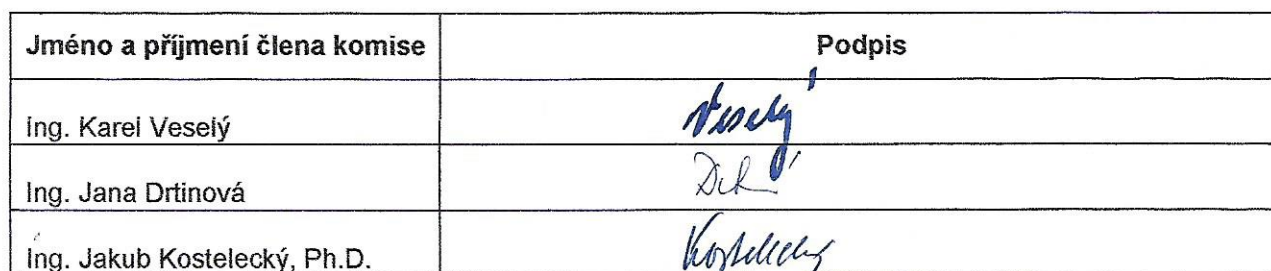 Jméno a příjmení člena komise Podpis
Ing. Karel Veselý Veselý
Ing. Jana Drtinová
Ing. Jakub Kostelecký, Ph.D. Kostelecký